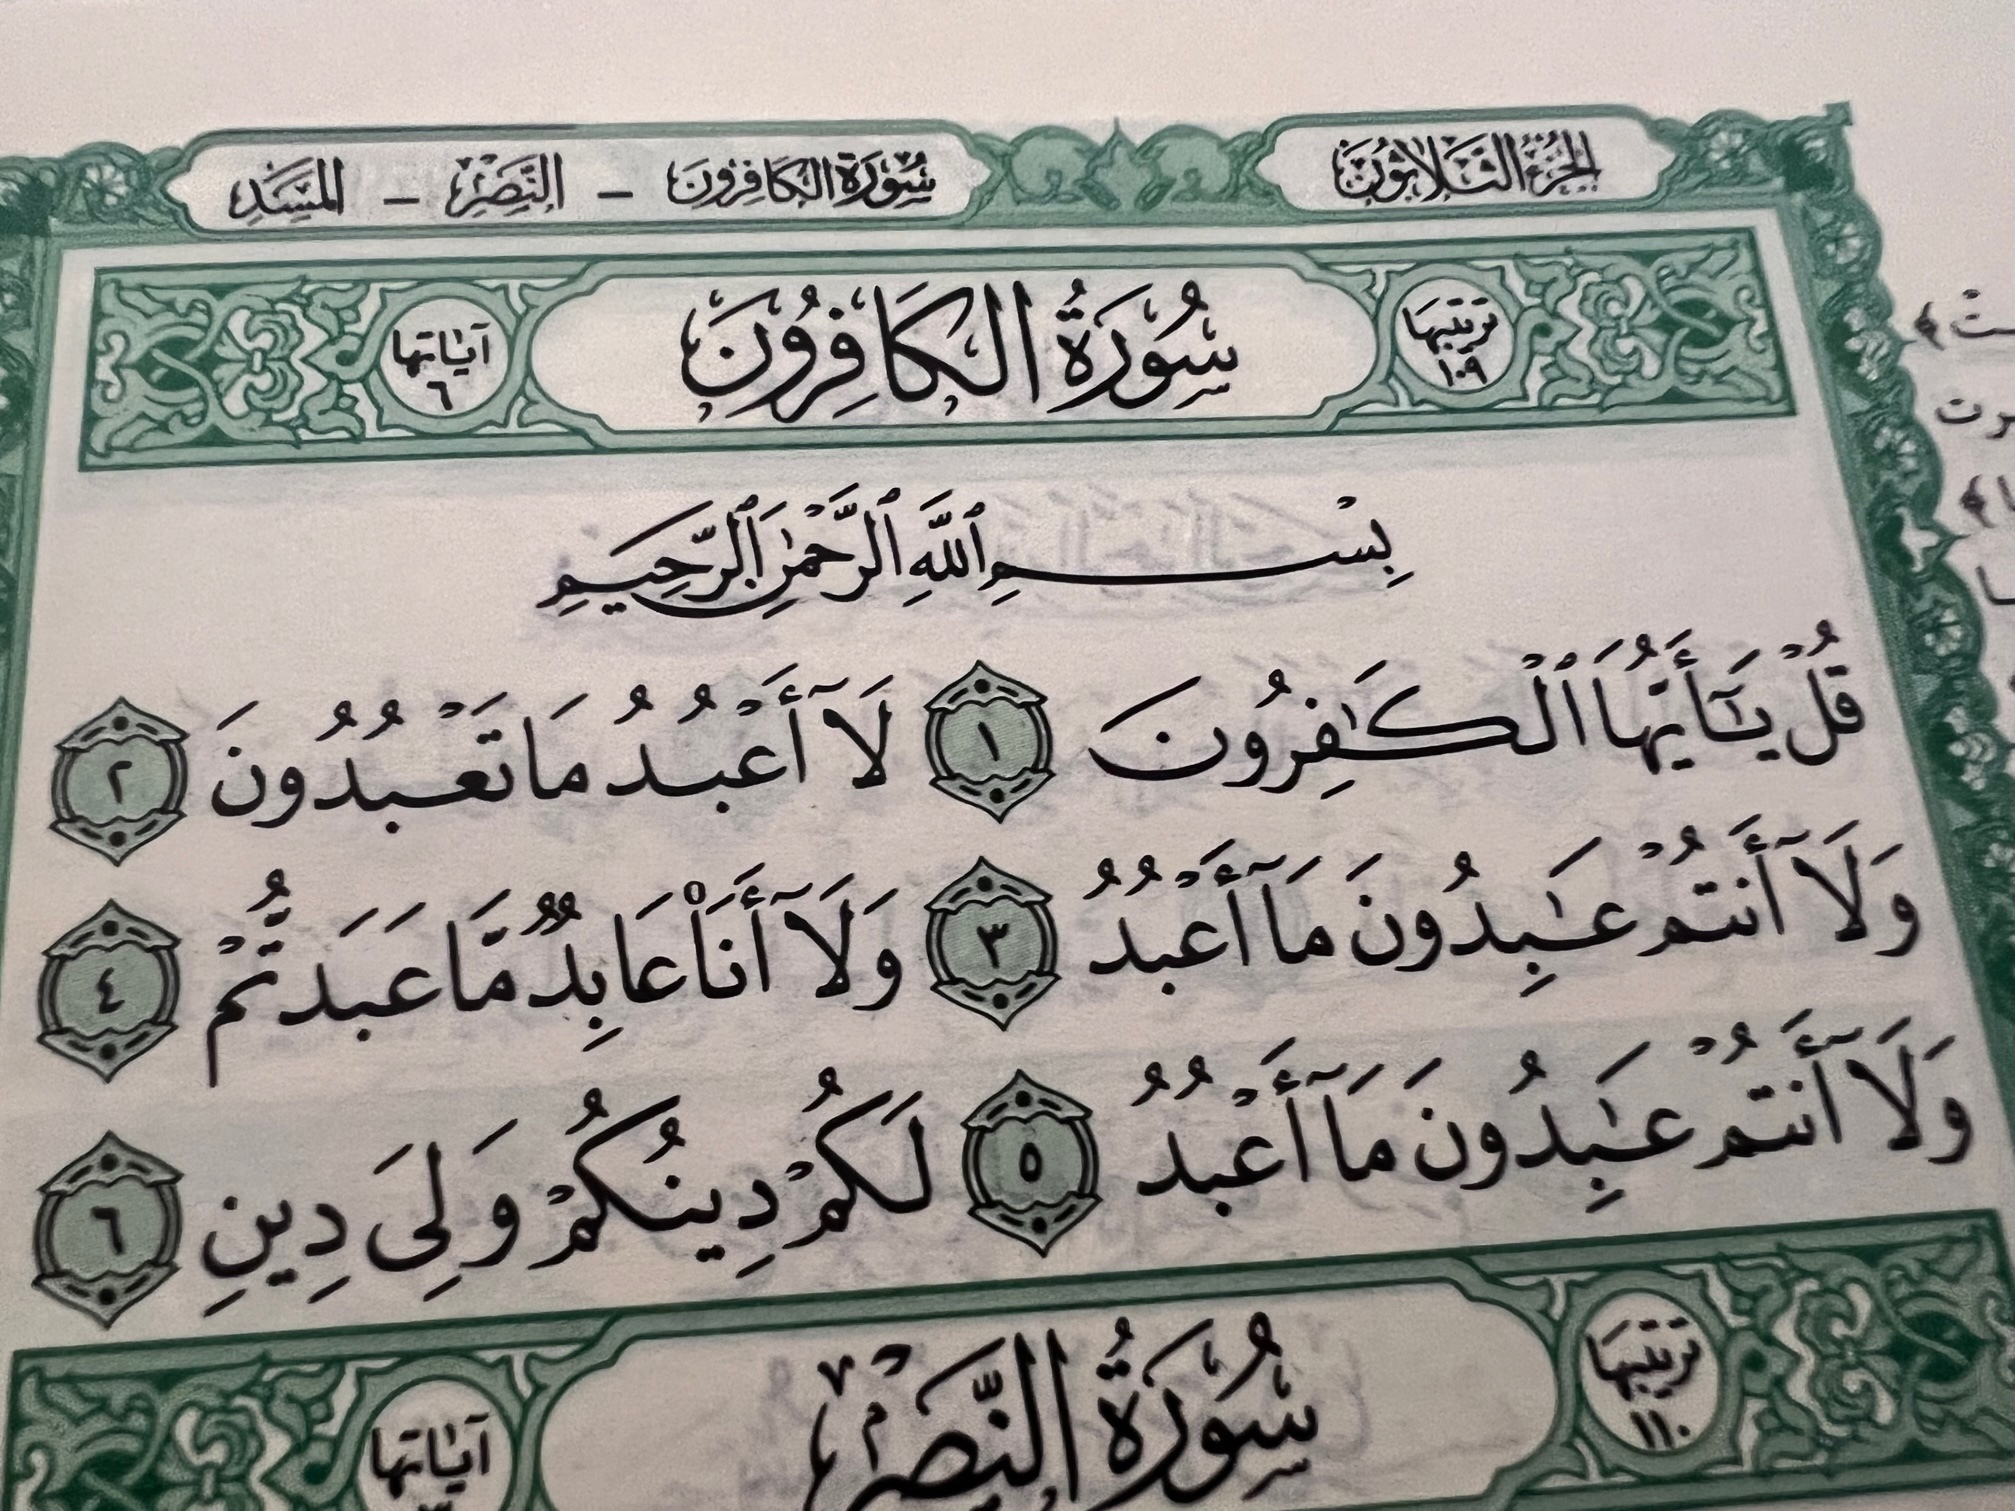 الجزء الثلاثون
سُورَةُ الكَافِرُونَ – النَّصْرِ – المَسَدِ
ترتيبها ١٠٩
سُورَةُ الكَافِرُونَ
آيَاتها ٦
بِسْمِ ٱللَّهِ ٱلرَّحْمَٰنِ ٱلرَّحِيمِ
قُلْ يَٰٓأَيُّهَا ٱلْكَٰفِرُونَ ١ لَآ أَعْبُدُ مَا تَعْبُدُونَ ٢
وَلَآ أَنتُمْ عَٰبِدُونَ مَآ أَعْبُدُ ٣ وَلَآ أَنَا۠ عَابِدٌ مَّا عَبَدتُّمْ ٤
وَلَآ أَنتُمْ عَٰبِدُونَ مَآ أَعْبُدُ ٥ لَكُمْ دِينُكُمْ وَلِىَ دِينِ ٦
ترتيبها ١١٠
سُورَةُ النَّصْرِ
آيَاتها